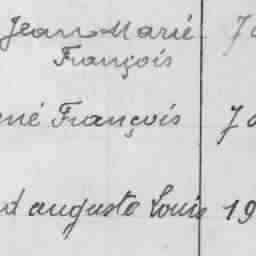 Jean Marie
François
né François
auguste Louis 19